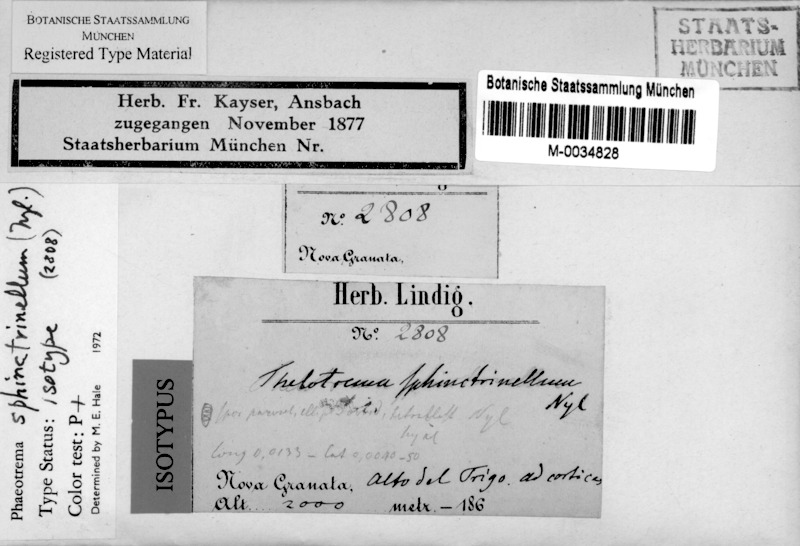 BOTANISCHE STAATSSAMMLUNG
MÜNCHEN
Registered Type Material
STAATS-
HERBARIUM
MÜNCHEN
Herb. Fr. Kayser, Ansbach
zugegangen November 1877
Staatsherbarium München Nr.
Botanische Staatssammlung München
M-0034828
Phaeotrema sphinctrinellum (Nyl.)
Type Status: isotype (2808)
Color test: P+
Determined by M. E. Hale 1972
No. 2808
Nova Granata,
Herb. Lindig.
No. 2808
Thelotrema sphinctrinellum
Nyl
Nyl
hyal
long 0,0133 – lat 0,0040-50
Nova Granata, Alto del Trigo. ad cortices
Alt. 2000 metr. – 186
ISOTYPUS